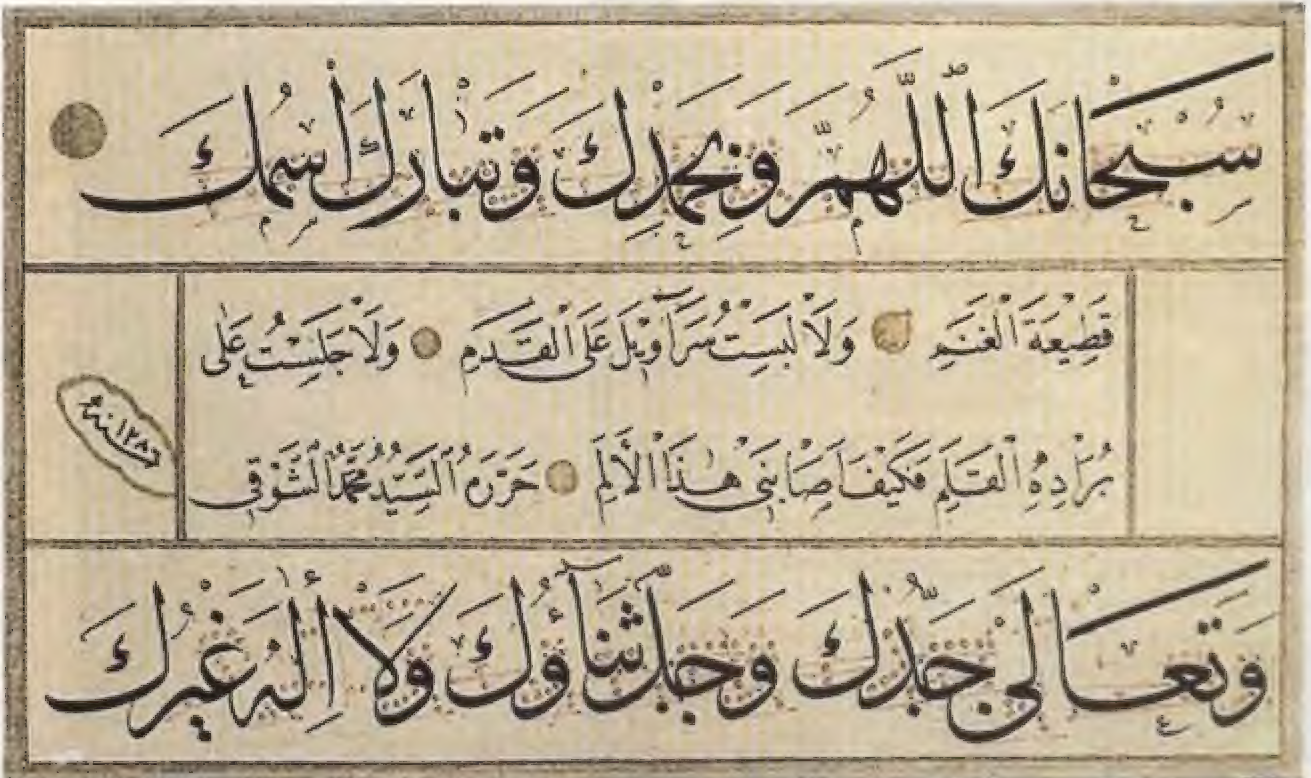 سُبْحَانَكَ اللّٰهُمَّ وَبِحَمْدِكَ وَتَبَارَكَ اسْمُكَ
قَطِيْعَةَ الْغَنَمِ وَلَا لَبِسْتُ سَرَاوِيْلَ عَلَى الْقَدَمِ وَلَا جَلَسْتُ عَلٰى
بُرَادِهِ الْقَلَمِ فَكَيْفَ اَصَابَنِىْ هٰذَا الْأَلَمِ حَرَّرَهُ السَّيِّدُ مُحَمَّدُ الشَّوْقِى
سنة ١٢٨٦
وَتَعَالٰى جَدُّكَ وَجَلَّ ثَنَاۤؤُكَ وَلَا إِلٰهَ غَيْرُكَ